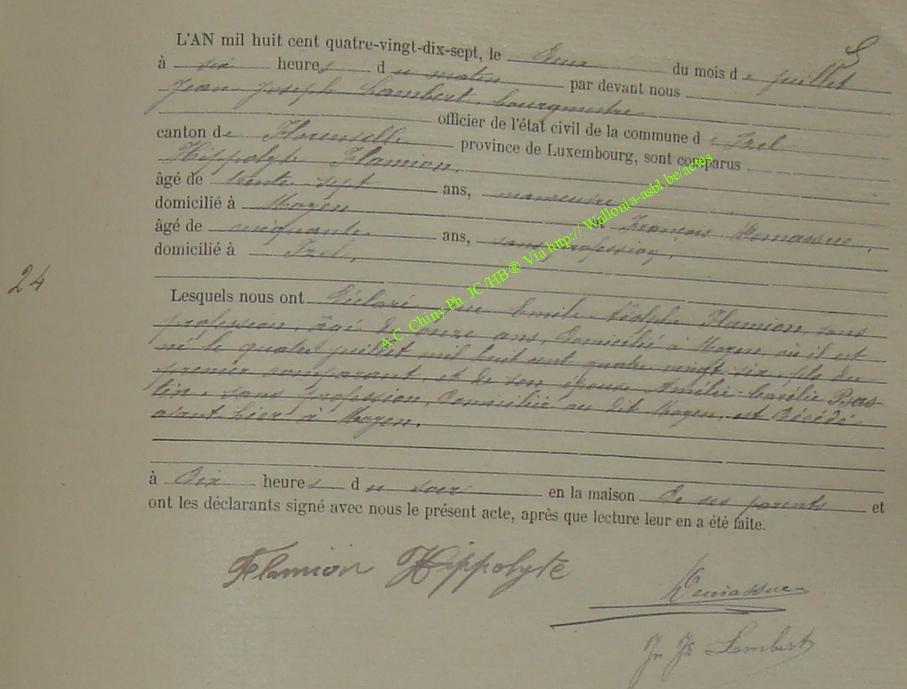 L'AN mil huit cent quatre-vingt-dix-sept, le Deux du mois de juillet
à six heures du matin par devant nous
Jean Joseph Lambert, bourgmestre
officier de l'état civil de la commune de Izel
canton de Florenville province de Luxembourg, sont comparus
Hippolyte Flamion,
âgé de trente sept ans, manœuvre
domicilié à Moyen et François Demasque,
âgé de cinquante ans, sans profession,
domicilié à Izel,
24
Lesquels nous ont déclaré que Emile Flamion, sans
profession, âgé de onze ans, domicilié à Moyen, où il est
né le quatre juillet mil huit cent quatre vingt six, fils du
premier comparant et de son épouse Amélie Bas-
tin, sans profession, domiciliée au dit Moyen, est décédé
avant hier à Moyen.
à dix heures du soir en la maison de ses parents et
ont les déclarants signé avec nous le présent acte, après que lecture leur en a été faite.
Flamion Hippolyte
J. Js Lambert
A.C. Chiny Ph JC/HB ® Via http://Wallonia-asbl.be/actes